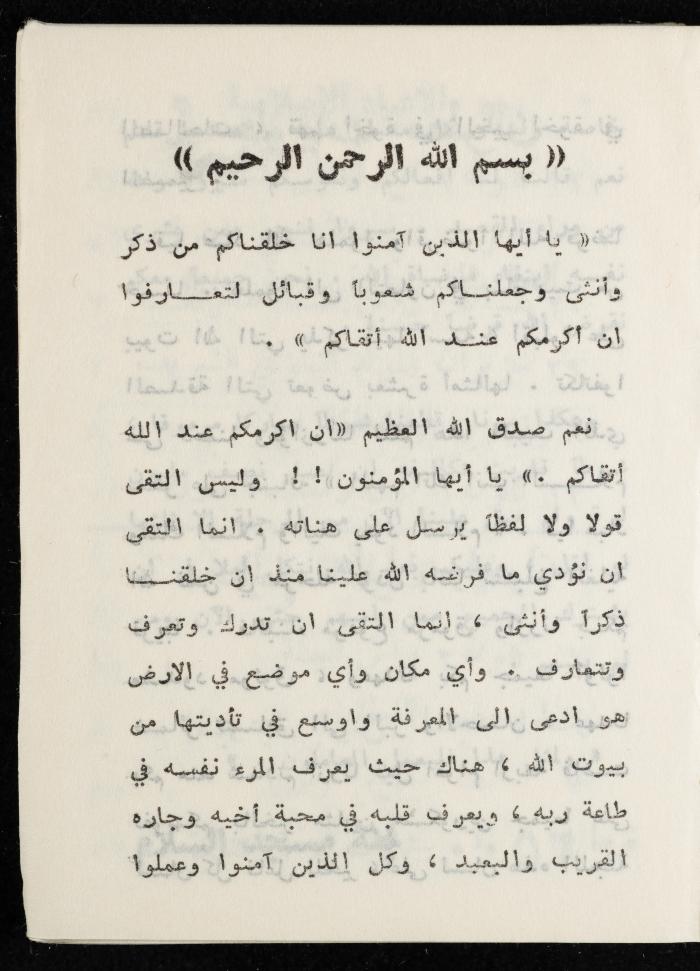 (( بسم الله الرحمن الرحيم ))
« يا أيها الذين آمنوا انا خلقناكم من ذكر
وأنثى وجعلنـاكم شعوباً وقبائل لتعـارفوا
ان أكرمكم عنـد الله أتقاكم » .
نعم صدق الله العظيم «ان اكرمكم عند الله
أتقاكم .» يا أيها المؤمنون ! ! وليس التقى
قولا ولا لفظاً يرسل على هناته . انما التقى
ان نؤدي ما فرضه الله علينا منذ ان خلقنـا
ذكراً وأنثى ، انما التقى ان تدرك وتعرف
وتتعارف . وأي مكان وأي موضع في الارض
هو ادعى الى المعرفة واوسع في تأديتها من
بيوت الله ، هناك حيث يعرف المرء نفسه في
طاعة ربه ، ويعرف قلبه في محبة أخيه وجاره
القريب والبعيد ، وكل الذين آمنوا وعملوا